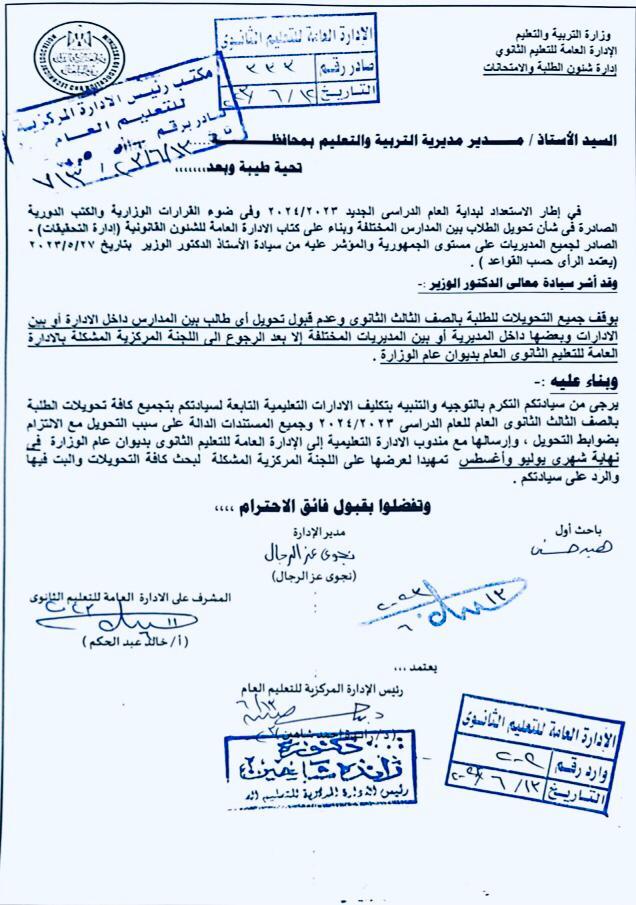 وزارة التربية والتعليم
الإدارة العامة للتعليم الثانوي
إدارة شئون الطلبة والامتحانات
الإدارة العامة للتعليم الثانوى
صادر رقم ٣٣٣
التاريخ ١٢/ ٦/
مكتب رئيس الادارة المركزية
للتعليم العام
صادر برقم
٧١٣
السيد الأستاذ / مـــدير مديرية التربية والتعليم بمحافظـــة
تحية طيبة وبعد،،،،،،،
فى إطار الاستعداد لبداية العام الدراسى الجديد ٢٠٢٤/٢٠٢٣ وفى ضوء القرارات الوزارية والكتب الدورية
الصادرة فى شأن تحويل الطلاب بين المدارس المختلفة وبناء على كتاب الادارة العامة للشئون القانونية (إدارة التحقيقات) -
الصادر لجميع المديريات على مستوى الجمهورية والمؤشر عليه من سيادة الأستاذ الدكتور الوزير بتاريخ ٢٠٢٣/٥/٢٧
(يعتمد الرأى حسب القواعد ) .
وقد أشر سيادة معالى الدكتور الوزير :-
بوقف جميع التحويلات للطلبة بالصف الثالث الثانوى وعدم قبول تحويل أي طالب بين المدارس داخل الادارة أو بين
الادارات وبعضها داخل المديرية أو بين المديريات المختلفة إلا بعد الرجوع الى اللجنة المركزية المشكلة بالادارة
العامة للتعليم الثانوى العام بديوان عام الوزارة .
وبناء عليه :-
يرجى من سيادتكم التكرم بالتوجيه والتنبيه بتكليف الادارات التعليمية التابعة لسيادتكم بتجميع كافة تحويلات الطلبة
بالصف الثالث الثانوى العام للعام الدراسى ٢٠٢٤/٢٠٢٣ وجميع المستندات الدالة على سبب التحويل مع الالتزام
بضوابط التحويل ، وإرسالها مع مندوب الادارة التعليمية إلى الإدارة العامة للتعليم الثانوى بديوان عام الوزارة فى
نهاية شهرى يوليو وأغسطس تمهيدا لعرضها على اللجنة المركزية المشكلة لبحث كافة التحويلات والبت فيها
والرد على سيادتكم .
وتفضلوا بقبول فائق الاحترام ،،،،
باحث أول
مدير الإدارة
نجوى عز الرجال
(نجوى عز الرجال)
المشرف على الادارة العامة للتعليم الثانوى
( أ/ خالد عبد الحكم )
يعتمد ،،،
رئيس الإدارة المركزية للتعليم العام
دكتورة
رئيس الادارة المركزية للتعليم
الإدارة العامة للتعليم الثانوى
وارد رقم
التاريخ ١٢/ ٦/